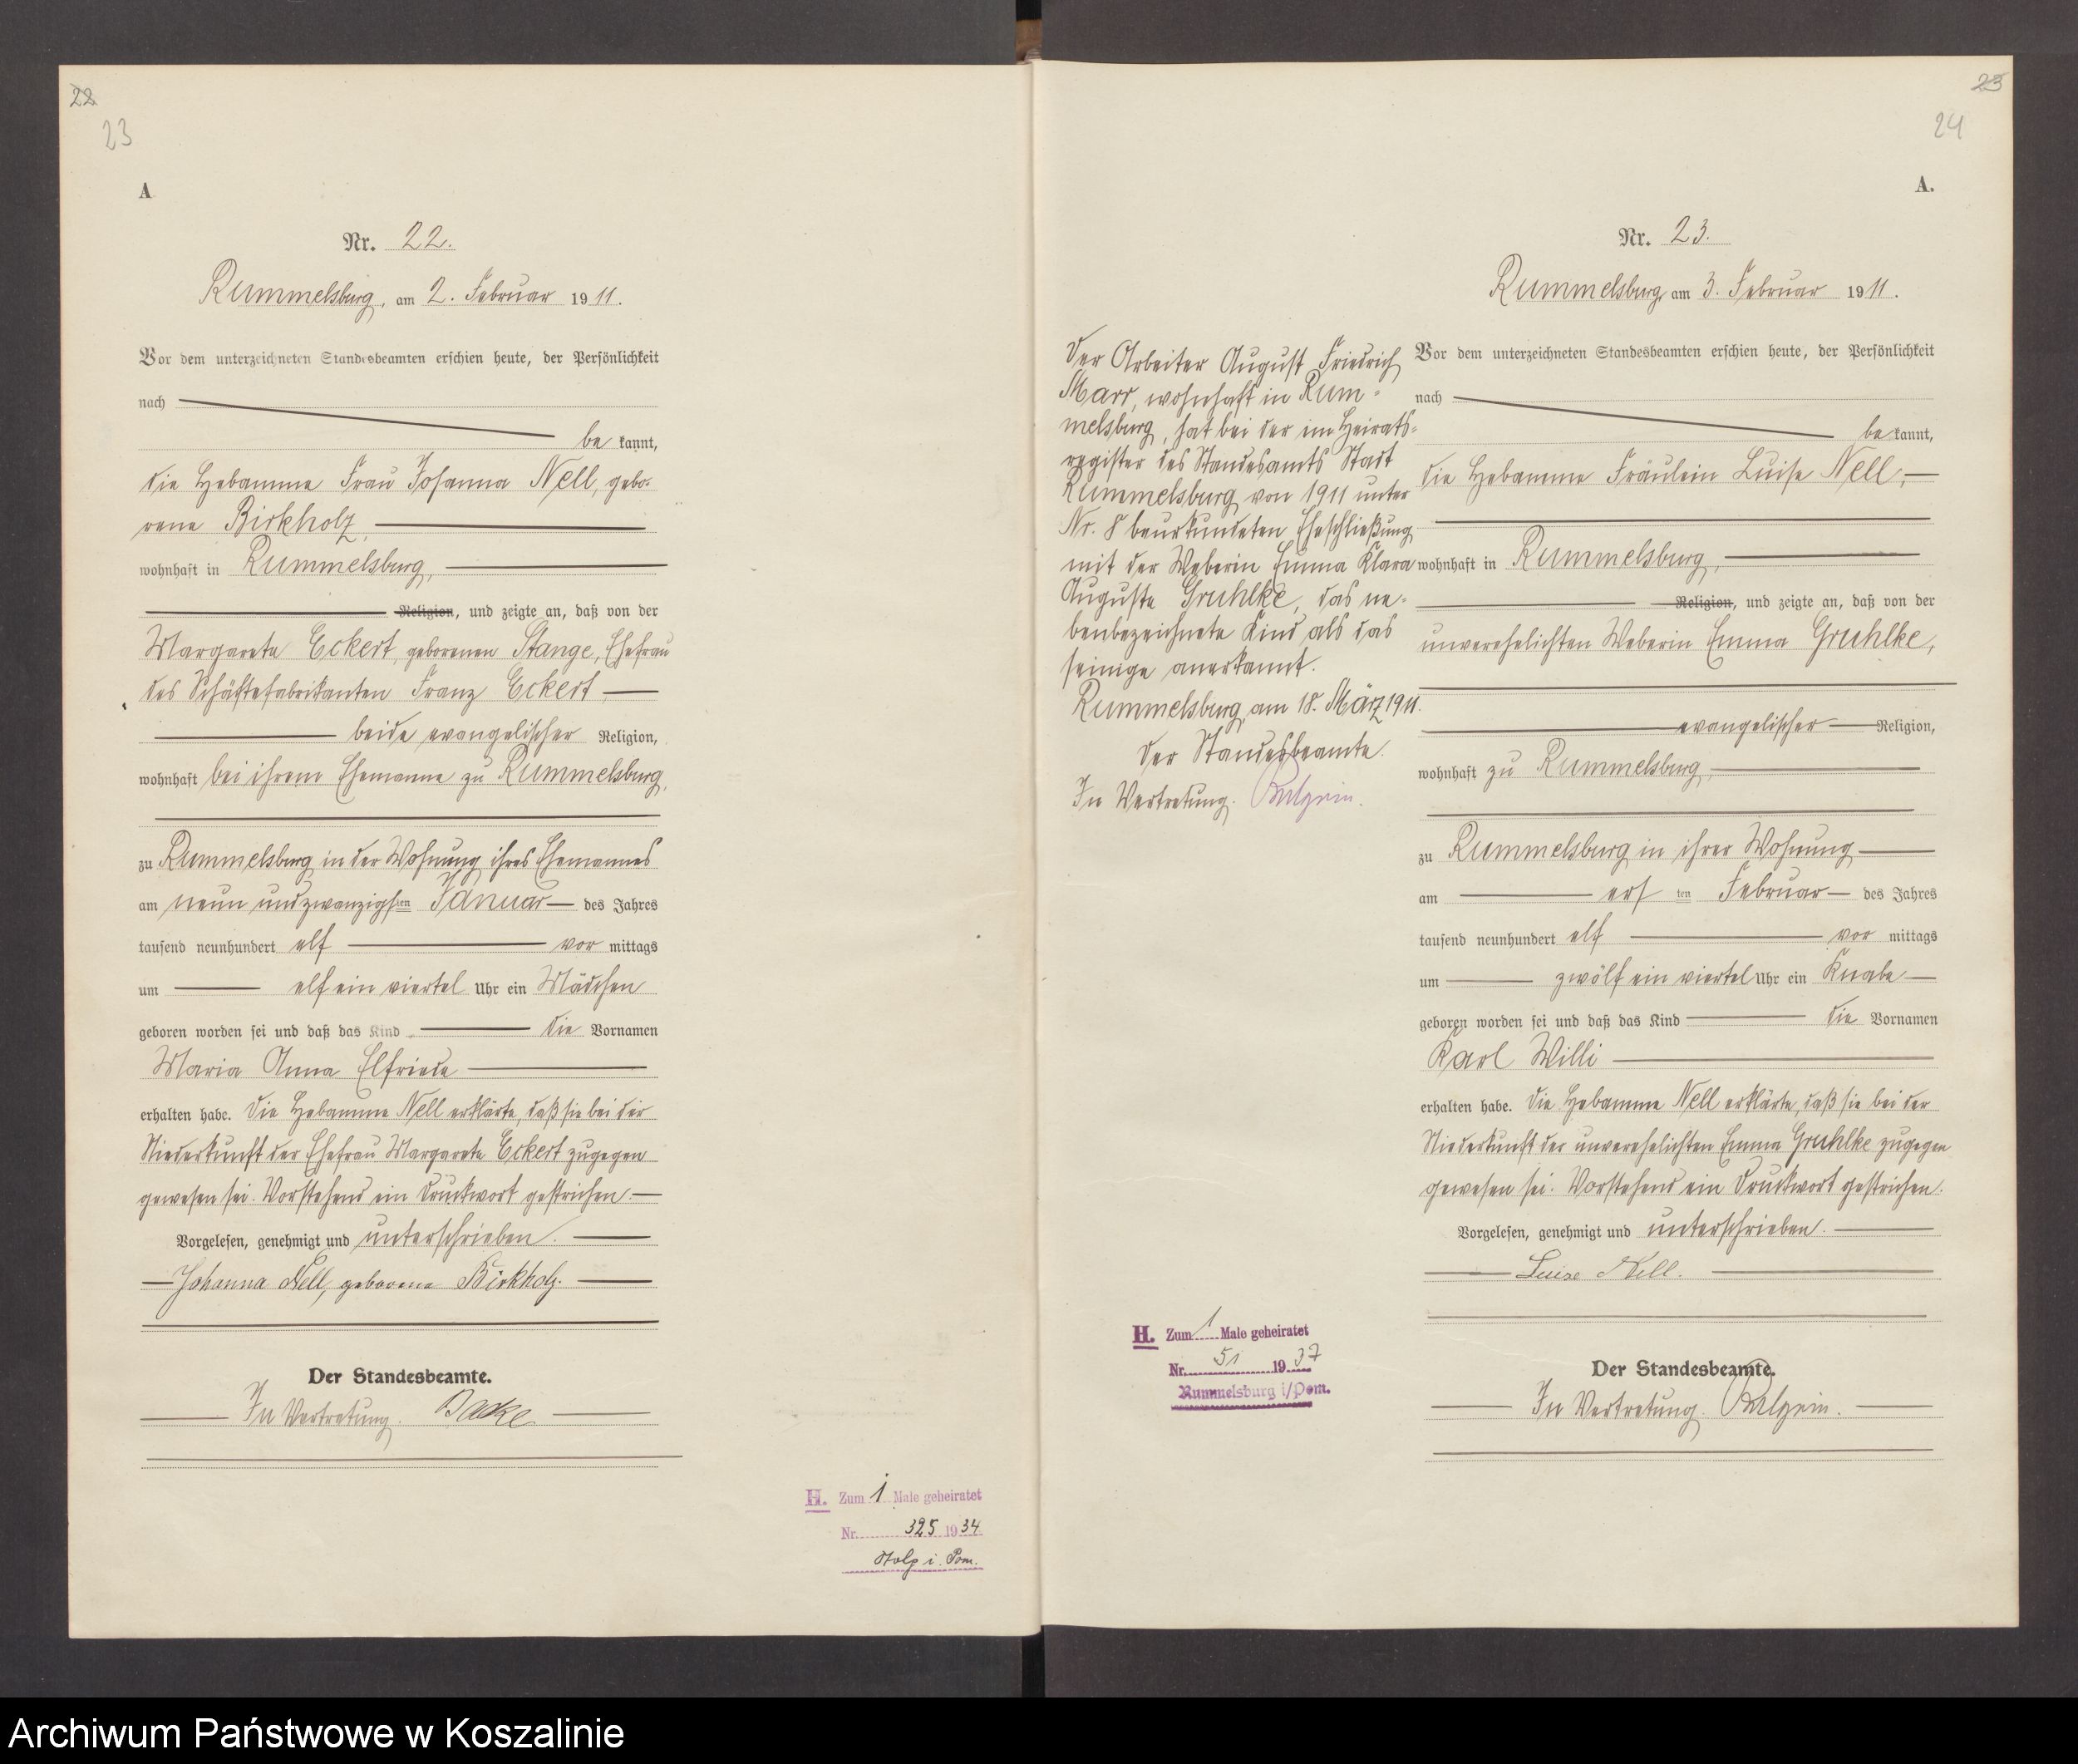 22
23
A
Nr. 22.
Rummelsburg, am 2. Februar 1911.
Vor dem unterzeichneten Standesbeamten erschien heute, der Persönlichkeit
nach
be kannt,
die Hebamme Frau Johanna Nell, gebo-
rene Birkholz,
wohnhaft in Rummelsburg,
Religion, und zeigte an, daß von der
Margarete Eckert, geborenen Stange, Ehefrau
des Schäftefabrikanten Franz Eckert
beide evangelischer Religion,
wohnhaft bei ihrem Ehemanne zu Rummelsburg,
zu Rummelsburg in der Wohnung ihres Ehemannes
am neun und zwanzigsten Januar des Jahres
tausend neunhundert elf vor mittags
um elf ein viertel Uhr ein Mädchen
geboren worden sei und daß das Kind die Vornamen
Maria Anna Elfriede
erhalten habe. Die Hebamme Nell erklärte, daß sie bei der
Niederkunft der Ehefrau Margarete Eckert zugegen
gewesen sei. Vorstehend ein Druckwort gestrichen.
Vorgelesen, genehmigt und unterschrieben.
Johanna Nell, geborene Birkholz.
Der Standesbeamte.
In Vertretung. Backe
H. Zum 1 Male geheiratet
Nr. 325 1934
Stolp i. Pom.
23
24
A.
Nr. 23.
Rummelsburg, am 3. Februar 1911.
Vor dem unterzeichneten Standesbeamten erschien heute, der Persönlichkeit
nach
be kannt,
die Hebamme Fräulein Luise Nell,
wohnhaft in Rummelsburg,
Religion, und zeigte an, daß von der
unverehelichten Weberin Emma Gruhlke,
evangelischer Religion,
wohnhaft zu Rummelsburg,
zu Rummelsburg in ihrer Wohnung
am ersten Februar des Jahres
tausend neunhundert elf vor mittags
um zwölf ein viertel Uhr ein Knabe
geboren worden sei und daß das Kind die Vornamen
Karl Willi
erhalten habe. Die Hebamme Nell erklärte, daß sie bei der
Niederkunft der unverehelichten Emma Gruhlke zugegen
gewesen sei. Vorstehend ein Druckwort gestrichen.
Vorgelesen, genehmigt und unterschrieben.
Luise Nell.
Der Standesbeamte.
In Vertretung.
Der Arbeiter August Friedrich
Marr, wohnhaft in Rum-
melsburg, hat bei der im Heirats-
register des Standesamts Stadt
Rummelsburg von 1911 unter
Nr. 8 beurkundeten Eheschließung
mit der Weberin Emma Klara
Auguste Gruhlke, das ne-
benbezeichnete Kind als das
seinige anerkannt.
Rummelsburg, am 18. März 1911.
Der Standesbeamte.
In Vertretung.
H. Zum 1 Male geheiratet
Nr. 51 1937
Rummelsburg i/Pom.
Archiwum Państwowe w Koszalinie